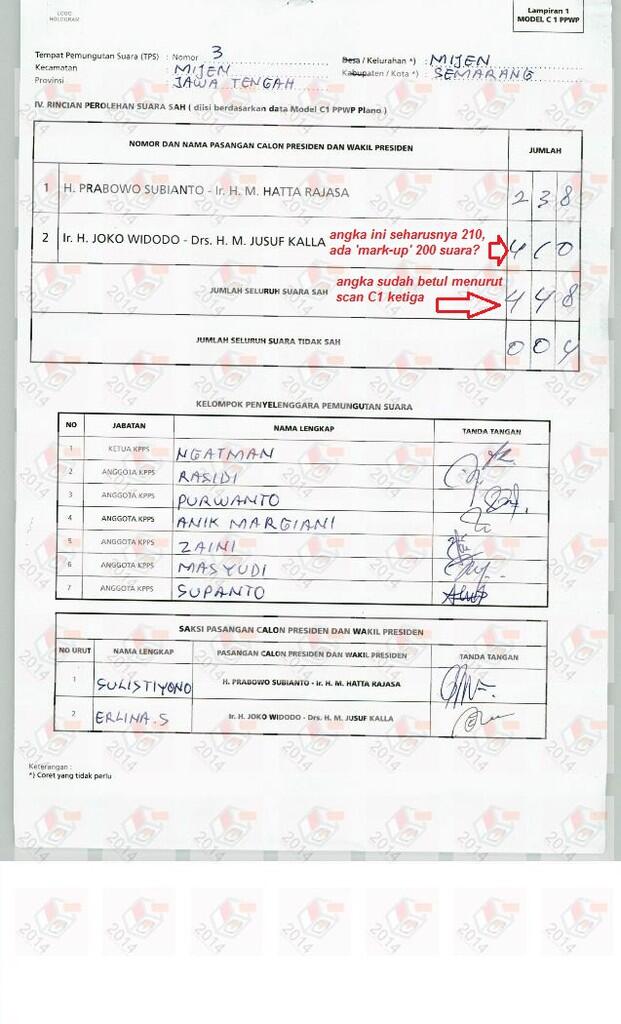 LOGO
HOLOGRAM
Lampiran 1
MODEL C 1 PPWP
Tempat Pemungutan Suara (TPS) : Nomor 3
Desa / Kelurahan *) : MIJEN
Kecamatan : MIJEN
Kabupaten / Kota *) : SEMARANG
Provinsi : JAWA TENGAH
IV. RINCIAN PEROLEHAN SUARA SAH ( diisi berdasarkan data Model C1 PPWP Plano )
NOMOR DAN NAMA PASANGAN CALON PRESIDEN DAN WAKIL PRESIDEN JUMLAH
1 H. PRABOWO SUBIANTO - Ir. H. M. HATTA RAJASA 2 3 8
2 Ir. H. JOKO WIDODO - Drs. H. M. JUSUF KALLA 4 1 0
angka ini seharusnya 210,
ada 'mark-up' 200 suara?
JUMLAH SELURUH SUARA SAH 4 4 8
angka sudah betul menurut
scan C1 ketiga
JUMLAH SELURUH SUARA TIDAK SAH 0 0 4
KELOMPOK PENYELENGGARA PEMUNGUTAN SUARA
NO JABATAN NAMA LENGKAP TANDA TANGAN
1 KETUA KPPS NGATMAN
2 ANGGOTA KPPS RASIDI
3 ANGGOTA KPPS PURWANTO
4 ANGGOTA KPPS ANIK MARGIANI
5 ANGGOTA KPPS ZAINI
6 ANGGOTA KPPS MASYUDI
7 ANGGOTA KPPS SUPANTO
SAKSI PASANGAN CALON PRESIDEN DAN WAKIL PRESIDEN
NO URUT NAMA LENGKAP PASANGAN CALON PRESIDEN DAN WAKIL PRESIDEN TANDA TANGAN
1 SULISTIYONO H. PRABOWO SUBIANTO - Ir. H. M. HATTA RAJASA
2 ERLINA.S Ir. H. JOKO WIDODO - Drs. H. M. JUSUF KALLA
Keterangan :
*) Coret yang tidak perlu
2014